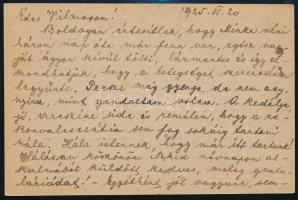 1925. VI. 20
Édes Vilmosom!
Boldogan értesítlek, hogy Minka néni
három nap óta már fenn van, egész nap-
ját ágyon kívül tölti, láztalan és így el-
mondhatjuk, hogy a betegséget szerencsésen
legyőzte. Persze még gyenge, de nem any-
nyira, mint gondoltam volna. A kedélye
jó, arcszíne üde és remélem, hogy a re-
konvalescentia sem fog sokáig tartani
nála. Hála Istennek, hogy már itt tartunk!
Hálásan köszönöm Neked névnapom al-
kalmából küldött kedves, meleg gratu-
lációdat! Egyébként jól vagyunk, sem-